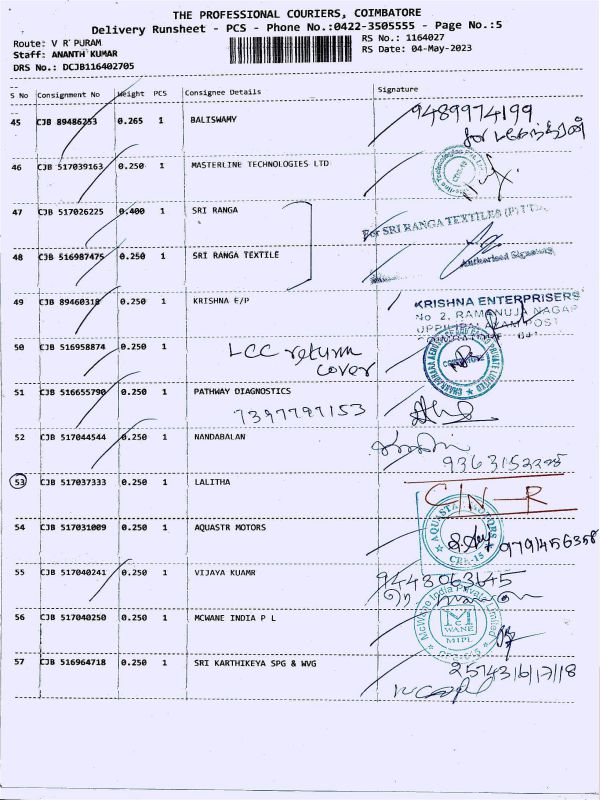 THE PROFESSIONAL COURIERS, COIMBATORE
Delivery Runsheet - PCS - Phone No.:0422-3505555 - Page No.:5
Route: V R PURAM RS No.: 1164027
Staff: ANANTH KUMAR RS Date: 04-May-2023
DRS No.: DCJB116402705
S No Consignment No Weight PCS Consignee Details Signature
45 CJB 89486253 0.265 1 BALISWAMY 9489974199
for
46 CJB 517039163 0.250 1 MASTERLINE TECHNOLOGIES LTD
47 CJB 517026225 0.400 1 SRI RANGA
For SRI RANGA TEXTILES (P) LTD.,
48 CJB 516987475 0.250 1 SRI RANGA TEXTILE
Authorised Signatory
49 CJB 89460318 0.250 1 KRISHNA E/P KRISHNA ENTERPRISERS
No 2, RAMANUJA NAGAR
UPPILIPALAYAM POST
50 CJB 516958874 0.250 1 LCC return
cover
51 CJB 516655790 0.250 1 PATHWAY DIAGNOSTICS
7397797153
52 CJB 517044544 0.250 1 NANDABALAN
53 CJB 517037333 0.250 1 LALITHA C/N-R
54 CJB 517031009 0.250 1 AQUASTR MOTORS AQUASTAR MOTORS
9791456358
CBE-15
55 CJB 517040241 0.250 1 VIJAYA KUAMR 9443063645
56 CJB 517040250 0.250 1 MCWANE INDIA P L McWane India Private Limited
McWANE
MIPL
57 CJB 516964718 0.250 1 SRI KARTHIKEYA SPG & WVG 2574316/17/18